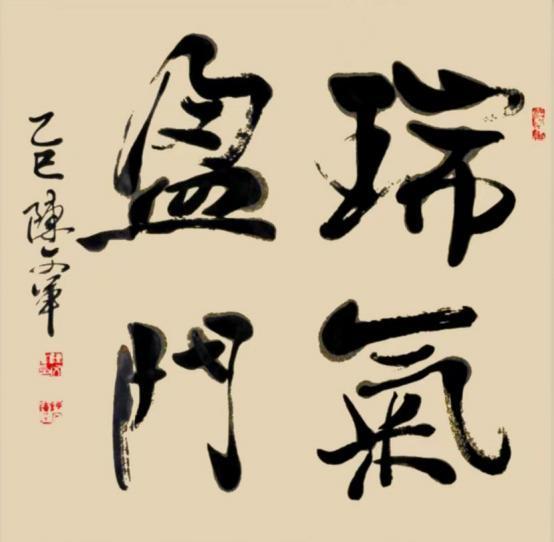 瑞氣
盈門
乙巳陳文軍